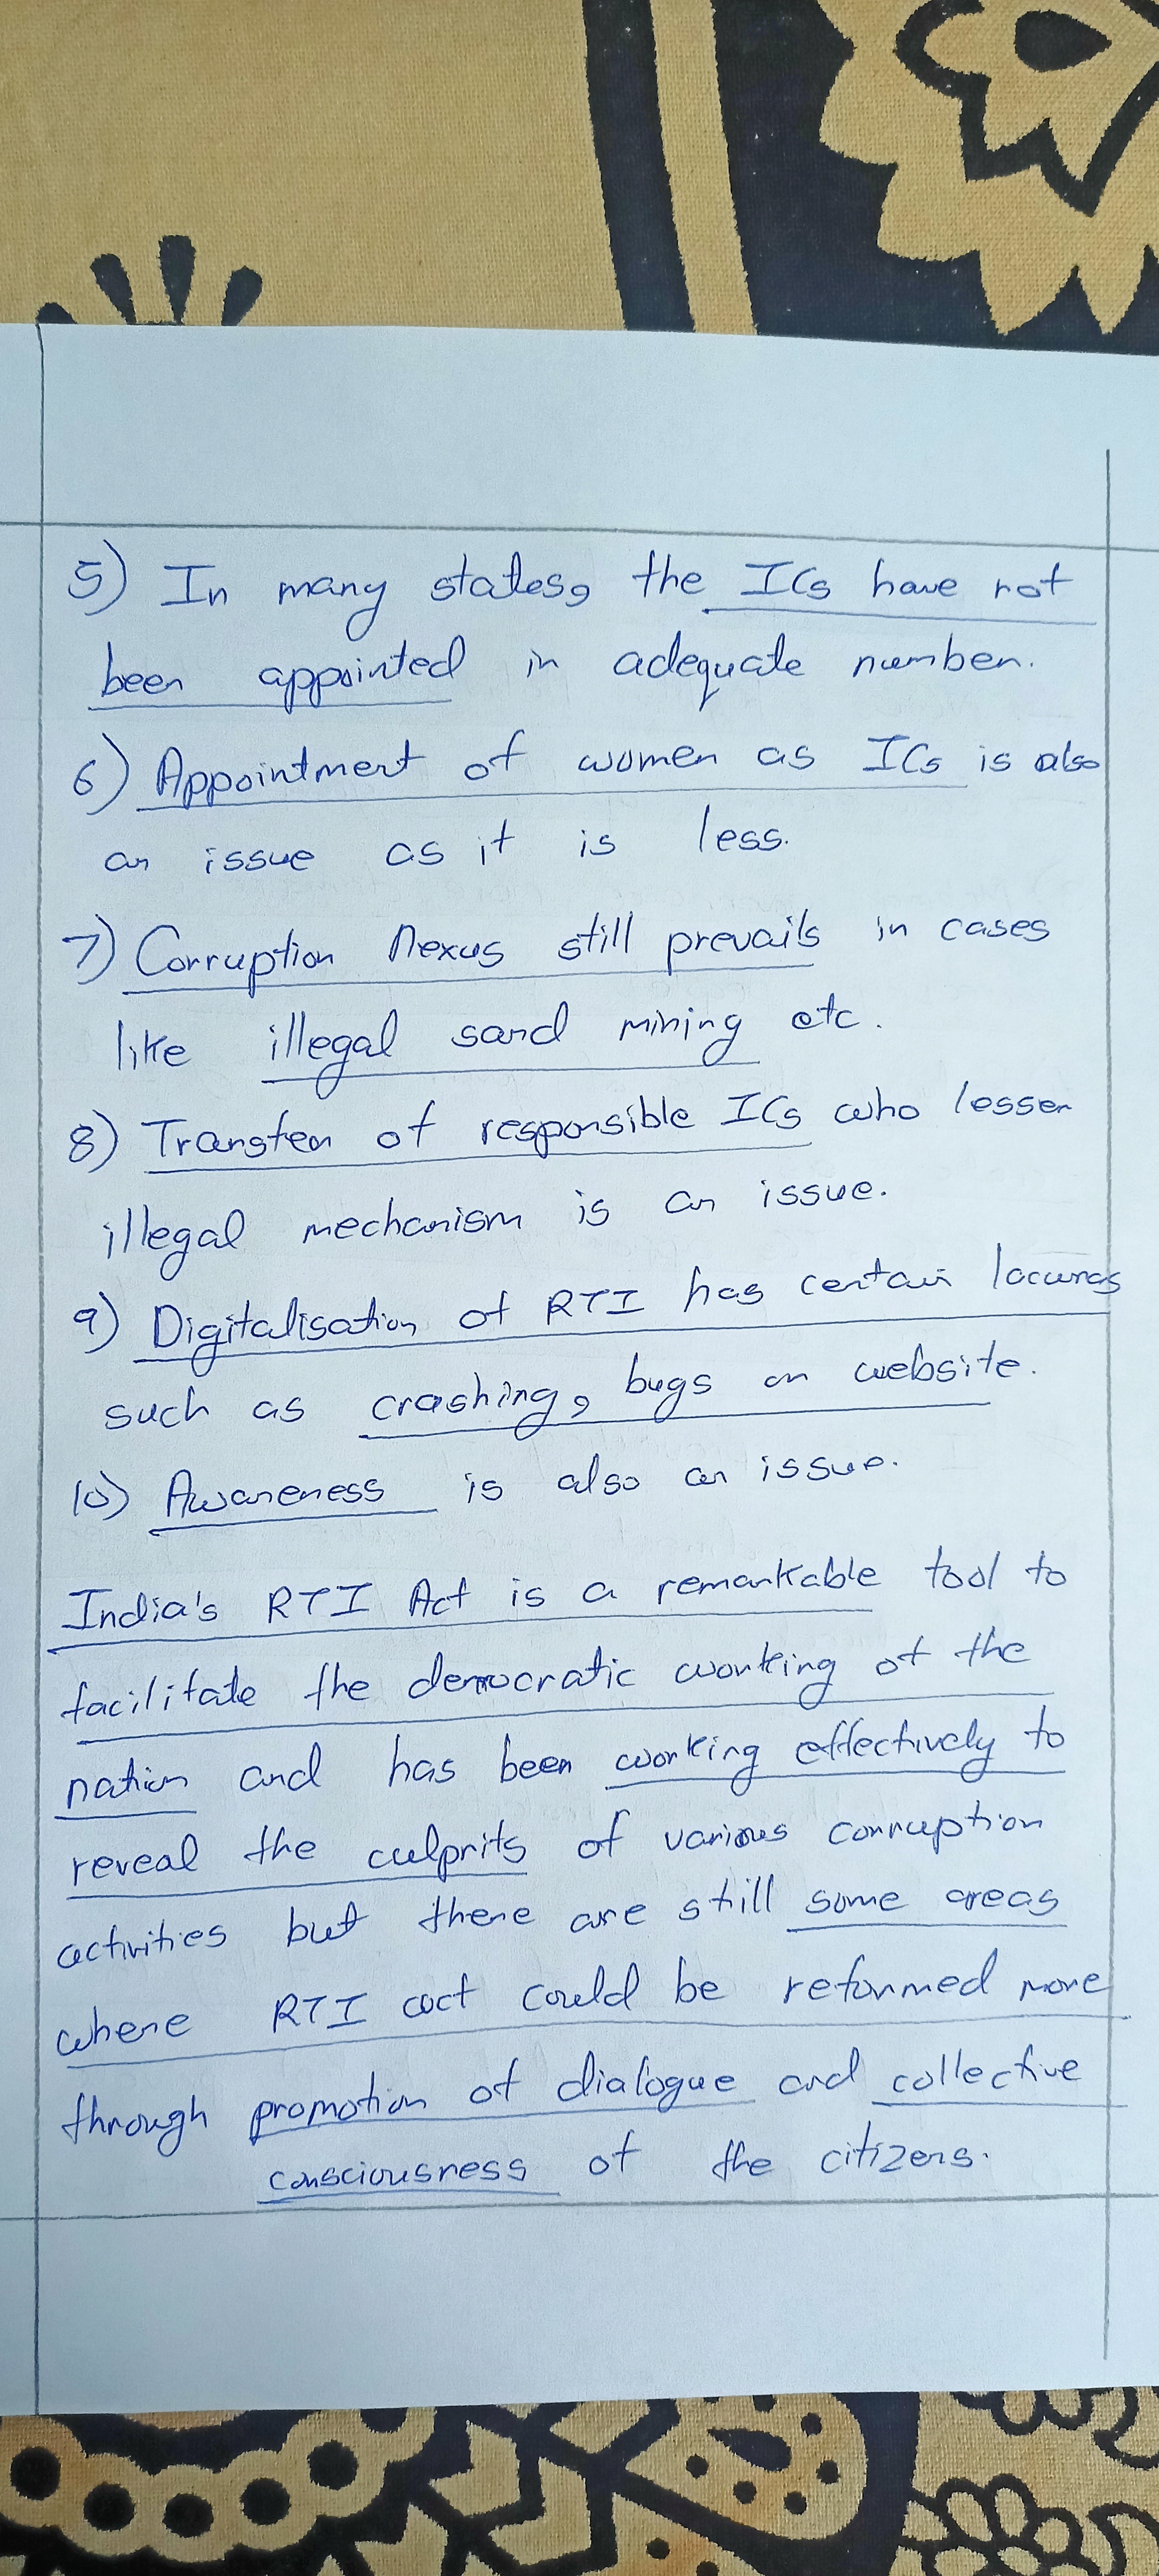 5) In many states, the ICs have not
been appointed in adequate number.
6) Appointment of women as ICs is also
an issue as it is less.
7) Corruption nexus still prevails in cases
like illegal sand mining etc.
8) Transfer of responsible ICs who lessen
illegal mechanism is an issue.
9) Digitalisation of RTI has certain lacunas
such as crashing, bugs on website.
10) Awareness is also an issue.
India's RTI Act is a remarkable tool to
facilitate the democratic working of the
nation and has been working effectively to
reveal the culprits of various corruption
activities but there are still some areas
where RTI act could be reformed more
through promotion of dialogue and collective
consciousness of the citizens.